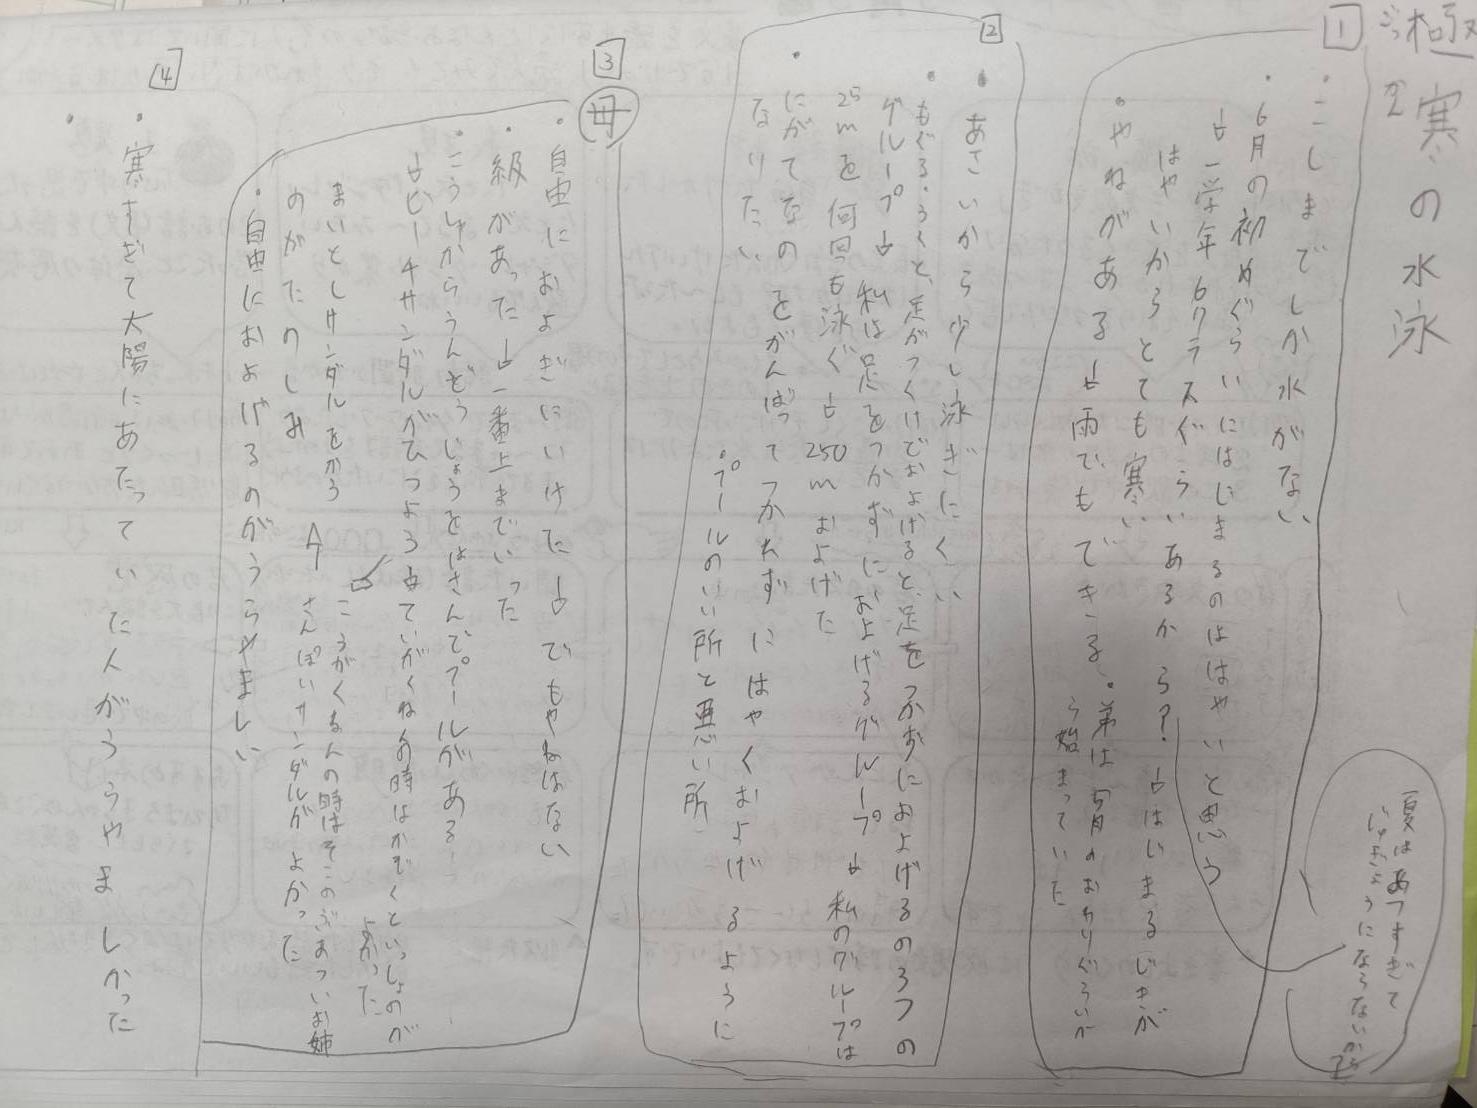 極寒の水泳
ごっかん
1
・こしまでしか水がない
・6月の初めぐらいにはじまるのははやいと思う
↓一学年6クラスぐらいあるから?↓はじまるじきが
はやいからとても寒い
・やねがある↓雨でもできる
・弟は5月のおわりぐらいから始まっていた
夏はあつすぎて
じゅぎょうにならないから
2
・あさいから少し泳ぎにくい
・もぐる・うくと、足がつくけどおよげると、足をつかずにおよげるの3つの
グループ↓私は足をつかずにおよげるグループ↓私のグループは
25mを何回も泳ぐ↓250mおよげた
・にがてなのをがんばってつかれずにはやくおよげるように
なりたい
・プールのいい所と悪い所
3
母
・自由におよぎにいけた↓でもやねはない
・級があった↓一番上までいった
・こうしゃからうんどうじょうをはさんでプールがある
↓ビーチサンダルがひつよう↓ていがくねんの時はかぞくといっしょのが
よかった
まいとしサンダルをかう
のがたのしみ
こうがくねんの時は
さんぽいサンダルがよかった
・自由におよげるのがうらやましい
4
・寒すぎて太陽にあたっていた人がうらやましかった